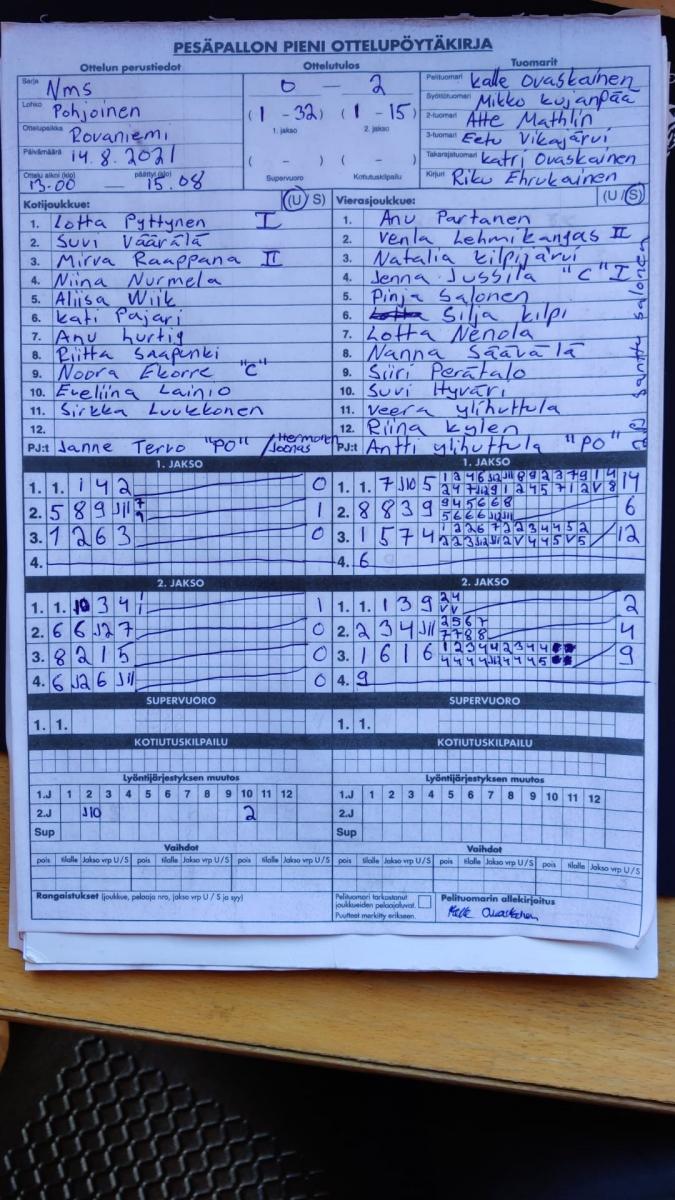 PESÄPALLON PIENI OTTELUPÖYTÄKIRJA
Ottelun perustiedot Ottelutulos Tuomarit
Sarja Nms 0 — 2 Pelituomari Kalle Ovaskainen
Lohko Pohjoinen (1 - 32) (1 - 15) Syöttötuomari Mikko Kujanpää
1. jakso 2. jakso
Ottelupaikka Rovaniemi 2-tuomari Atte Mathlin
3-tuomari Eetu Vikajärvi
Päivämäärä 14.8.2021 ( - ) ( - ) Takarajatuomari Katri Ovaskainen
Ottelu alkoi (klo) päättyi (klo) Supervuoro Kotiutuskilpailu
13.00 — 15.08 Kirjuri Riku Ehrukainen
Kotijoukkue: (U/S) Vierasjoukkue: (U/S)
1. Lotta Pyttynen I 1. Anu Partanen
2. Suvi Väärälä 2. Venla Lehmikangas II
3. Mirva Raappana II 3. Natalia Kilpijärvi
4. Niina Nurmela 4. Jenna Jussila "C" I
5. Aliisa Wiik 5. Pinja Salonen
6. Kati Pajari 6. Silja Kilpi
7. Anu Hurtig 7. Lotta Nenola
8. Riitta Saapunki 8. Nanna Säävälä
9. Noora Ekorre "C" 9. Siiri Perätalo
10. Eveliina Lainio 10. Suvi Hyväri
11. Sirkka Luukkonen 11. Veera Ylihuttula
12. 12. Riina Kylen
PJ:t Janne Tervo "PO" / Hermonen Joonas PJ:t Antti Ylihuttula "PO"
Santtu Salonen
1. JAKSO 1. JAKSO
1. 1. 1 4 2 0 1. 1. 7 J10 5 14
2. 5 8 9 J11 1 2. 8 8 3 9 6
3. 1 2 6 3 0 3. 1 5 7 4 12
4. 4. 6
2. JAKSO 2. JAKSO
1. 1. J10 3 4 1 1. 1. 1 3 9 2
2. 6 6 J12 7 0 2. 2 3 4 J11 4
3. 8 2 1 5 0 3. 1 6 1 6 9
4. 6 J12 6 J11 0 4. 9
SUPERVUORO SUPERVUORO
1. 1. 1. 1.
KOTIUTUSKILPAILU KOTIUTUSKILPAILU
Lyöntijärjestyksen muutos Lyöntijärjestyksen muutos
1.J 1 2 3 4 5 6 7 8 9 10 11 12 1.J 1 2 3 4 5 6 7 8 9 10 11 12
2.J J10 2 2.J
Sup Sup
Vaihdot Vaihdot
pois tilalle Jakso vrp U/S pois tilalle Jakso vrp U/S pois tilalle Jakso vrp U/S pois tilalle Jakso vrp U/S pois tilalle Jakso vrp U/S pois tilalle Jakso vrp U/S
Rangaistukset (joukkue, pelaaja nro, jakso vrp U / S ja syy) Pelituomari tarkastanut joukkueiden pelaajaluvat. Pelituomarin allekirjoitus
Puutteet merkitty erikseen. Kalle Ovaskainen